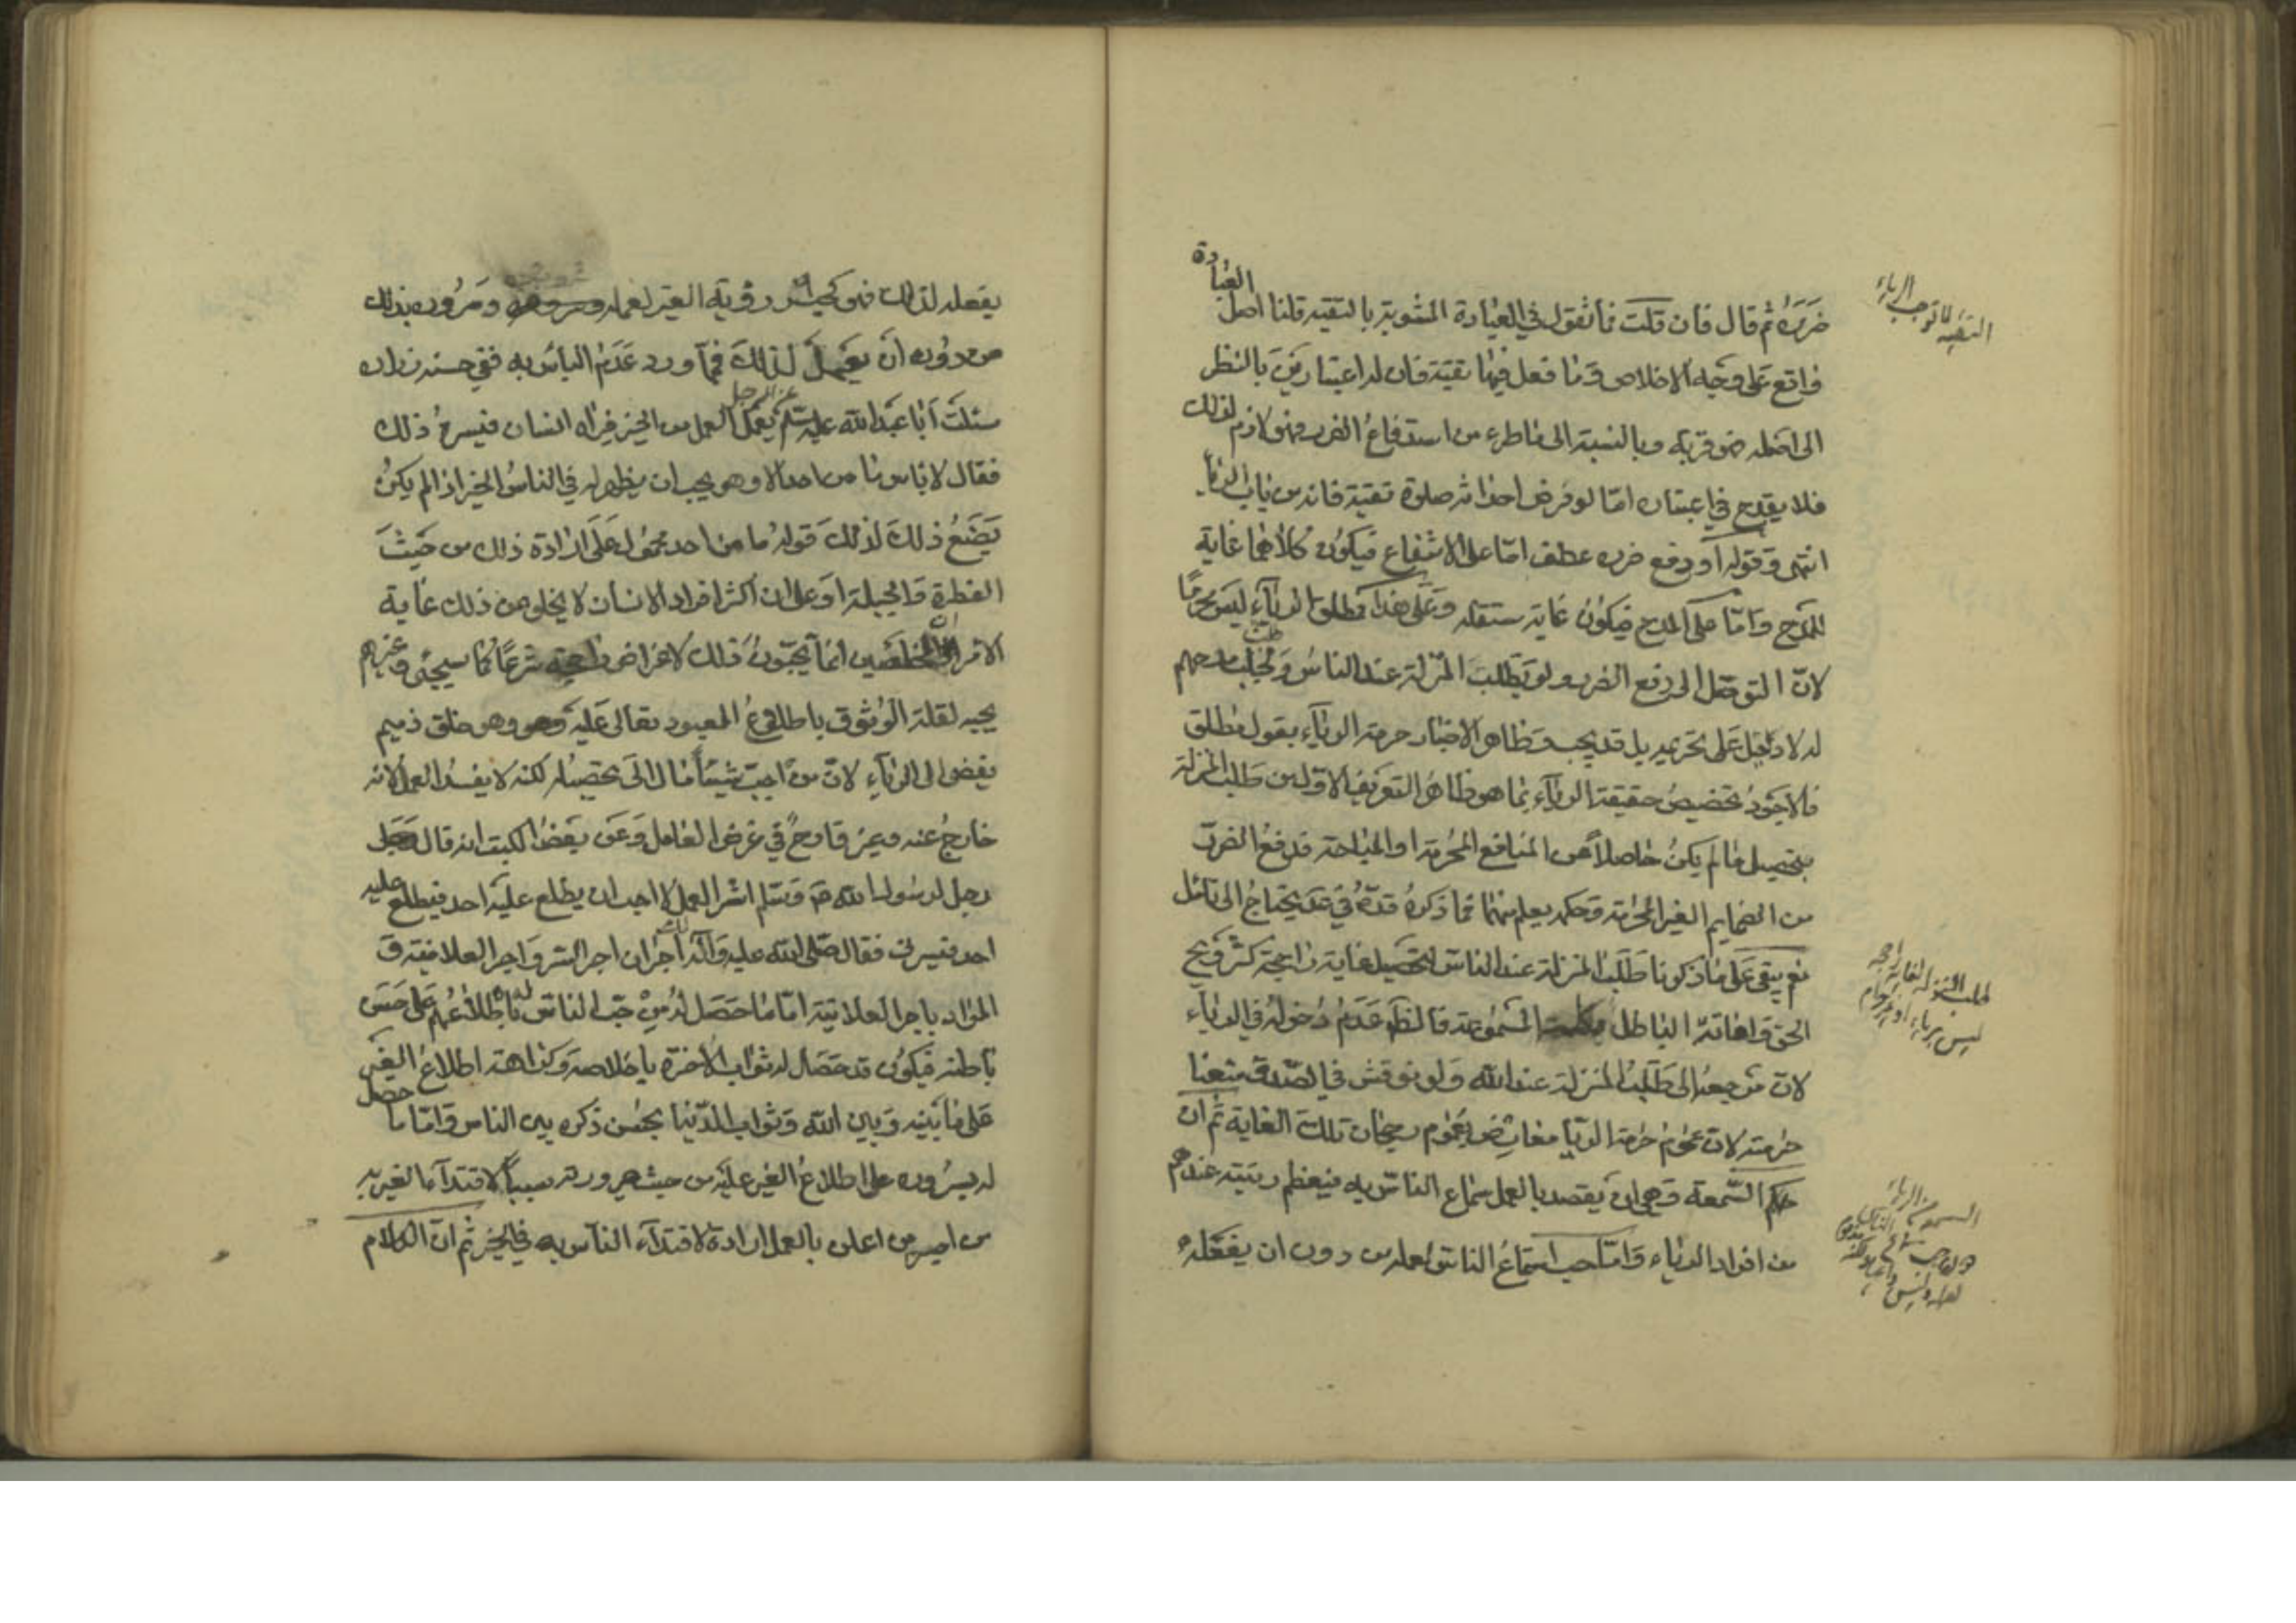 ضرره ثم قال فان قلت فما تقول في العبادة المشوبة بالتقية قلنا اصل العبادة
واقع على وجه الاخلاص وما فعل فيها تقية فان له اعتبارين بالنظر
الى اصله هو قربة وبالنسبة الى ما طرء من استدفاع الضرر فهو لازم لذلك
فلا يقدح في اعتباره امّا لو فرض احداثه صلوة تقية فانه من باب الرياء
انتهى وقوله او دفع ضرر عطف امّا على الاستنفاع فيكون كلاهما غاية
للمدح وامّا على المدح فيكون غاية مستقلة وعلى هذا فمطلق الرياء ليس محرمًا
لانّ التوصّل الى دفع الضرر ولو بطلب المنزلة عند الناس وجلب مدحهم
له لا دليل على تحريمه بل قد يجب وظاهر الاخبار حرمة الرياء بقول مطلق
فالاجود تخصيص حقيقة الرياء بما هو ظاهر التعريف الاول من طلب المنزلة
بتحصيل ما لم يكن حاصلاً من المنافع المحرمة او المباحة فدفع الضرر
من الضمايم الغير المحرمة وحكمه يعلم منها مما ذكره قدّه في قد يحتاج الى تامّل
نعم يبقى على ما ذكرنا طلب المنزلة عند الناس لتحصيل غاية راجحة كترويج
الحق واماتة الباطل السمعة فالظاهر عدم دخوله في الرياء
لان مرجعه الى طلب المنزلة عند الله ولو نوقش في الصدق منعنا
حرمته لان عموم حرمة الريا معارض بعموم رجحان تلك الغاية ثم ان
حكم السّمعة وهي ان يقصد بالعمل سماع الناس به فيعظم رتبته عندهم
من افراد الرياء وامّا حب استماع الناس لعمله من دون ان يفعله
التقية لا توجب الرياء
طلب المنزلة لغاية راجحة
ليس برياء او غير حرام
السمعة من الرياء
يفعله لذلك فهو كحب رؤية الغير لعمله وسروره بذلك
من دون ان يعمل لذلك فما ورد عدم الباس به ففي حسنة زراره
سئلت أبا عبد الله عليه السلم عن الرجل يعمل العمل من الخير فيراه انسان فيسره ذلك
فقال لا باس ما من احد الا وهو يحب ان يظهر له في الناس الخير اذا لم يكن
يصنع ذلك لذلك قوله ما من احد محمول على ارادة ذلك من حيث
الفطرة والجبلة او على ان اكثر افراد الانسان لا يخلو من ذلك غاية
الامر ان المخلصين انما يحبّون ذلك لاغراض راجحة شرعًا كما سيجئ وغيرهم
يحبه لقلة الوثوق باطلاع المعبود تعالى عليه وهو خلق ذميم
يفضى الى الرياء لانّ من احب شيئًا مال الى تحصيله لكنه لا يفسد العمل لانه
خارج عنه وغير قادح في غرض العامل وعن بعض الكتب انه قال
رجل لرسول الله ص وسلم اسّر العمل لا احب ان يطلع عليه احد فيطلع عليه
احد فيسرنى فقال صلى الله عليه وآله لك اجران اجر السر واجر العلانية و
المراد باجر العلانية امّا ما حصل له من حب الناس له باطلاعهم على حسن
باطنه فيكون قد حصل له ثواب الآخرة باخلاصه وكراهته اطلاع الغير
على ما بينه وبين الله وثواب الدّنيا بحسن ذكره بين الناس وامّا ما حصل
له بسروره على اطلاع الغير عليه من حيث صيرورته سبباً لاقتداء الغير به
من اعلن بالعمل ارادة لاقتداء الناس به في الخير ثم ان الكلام